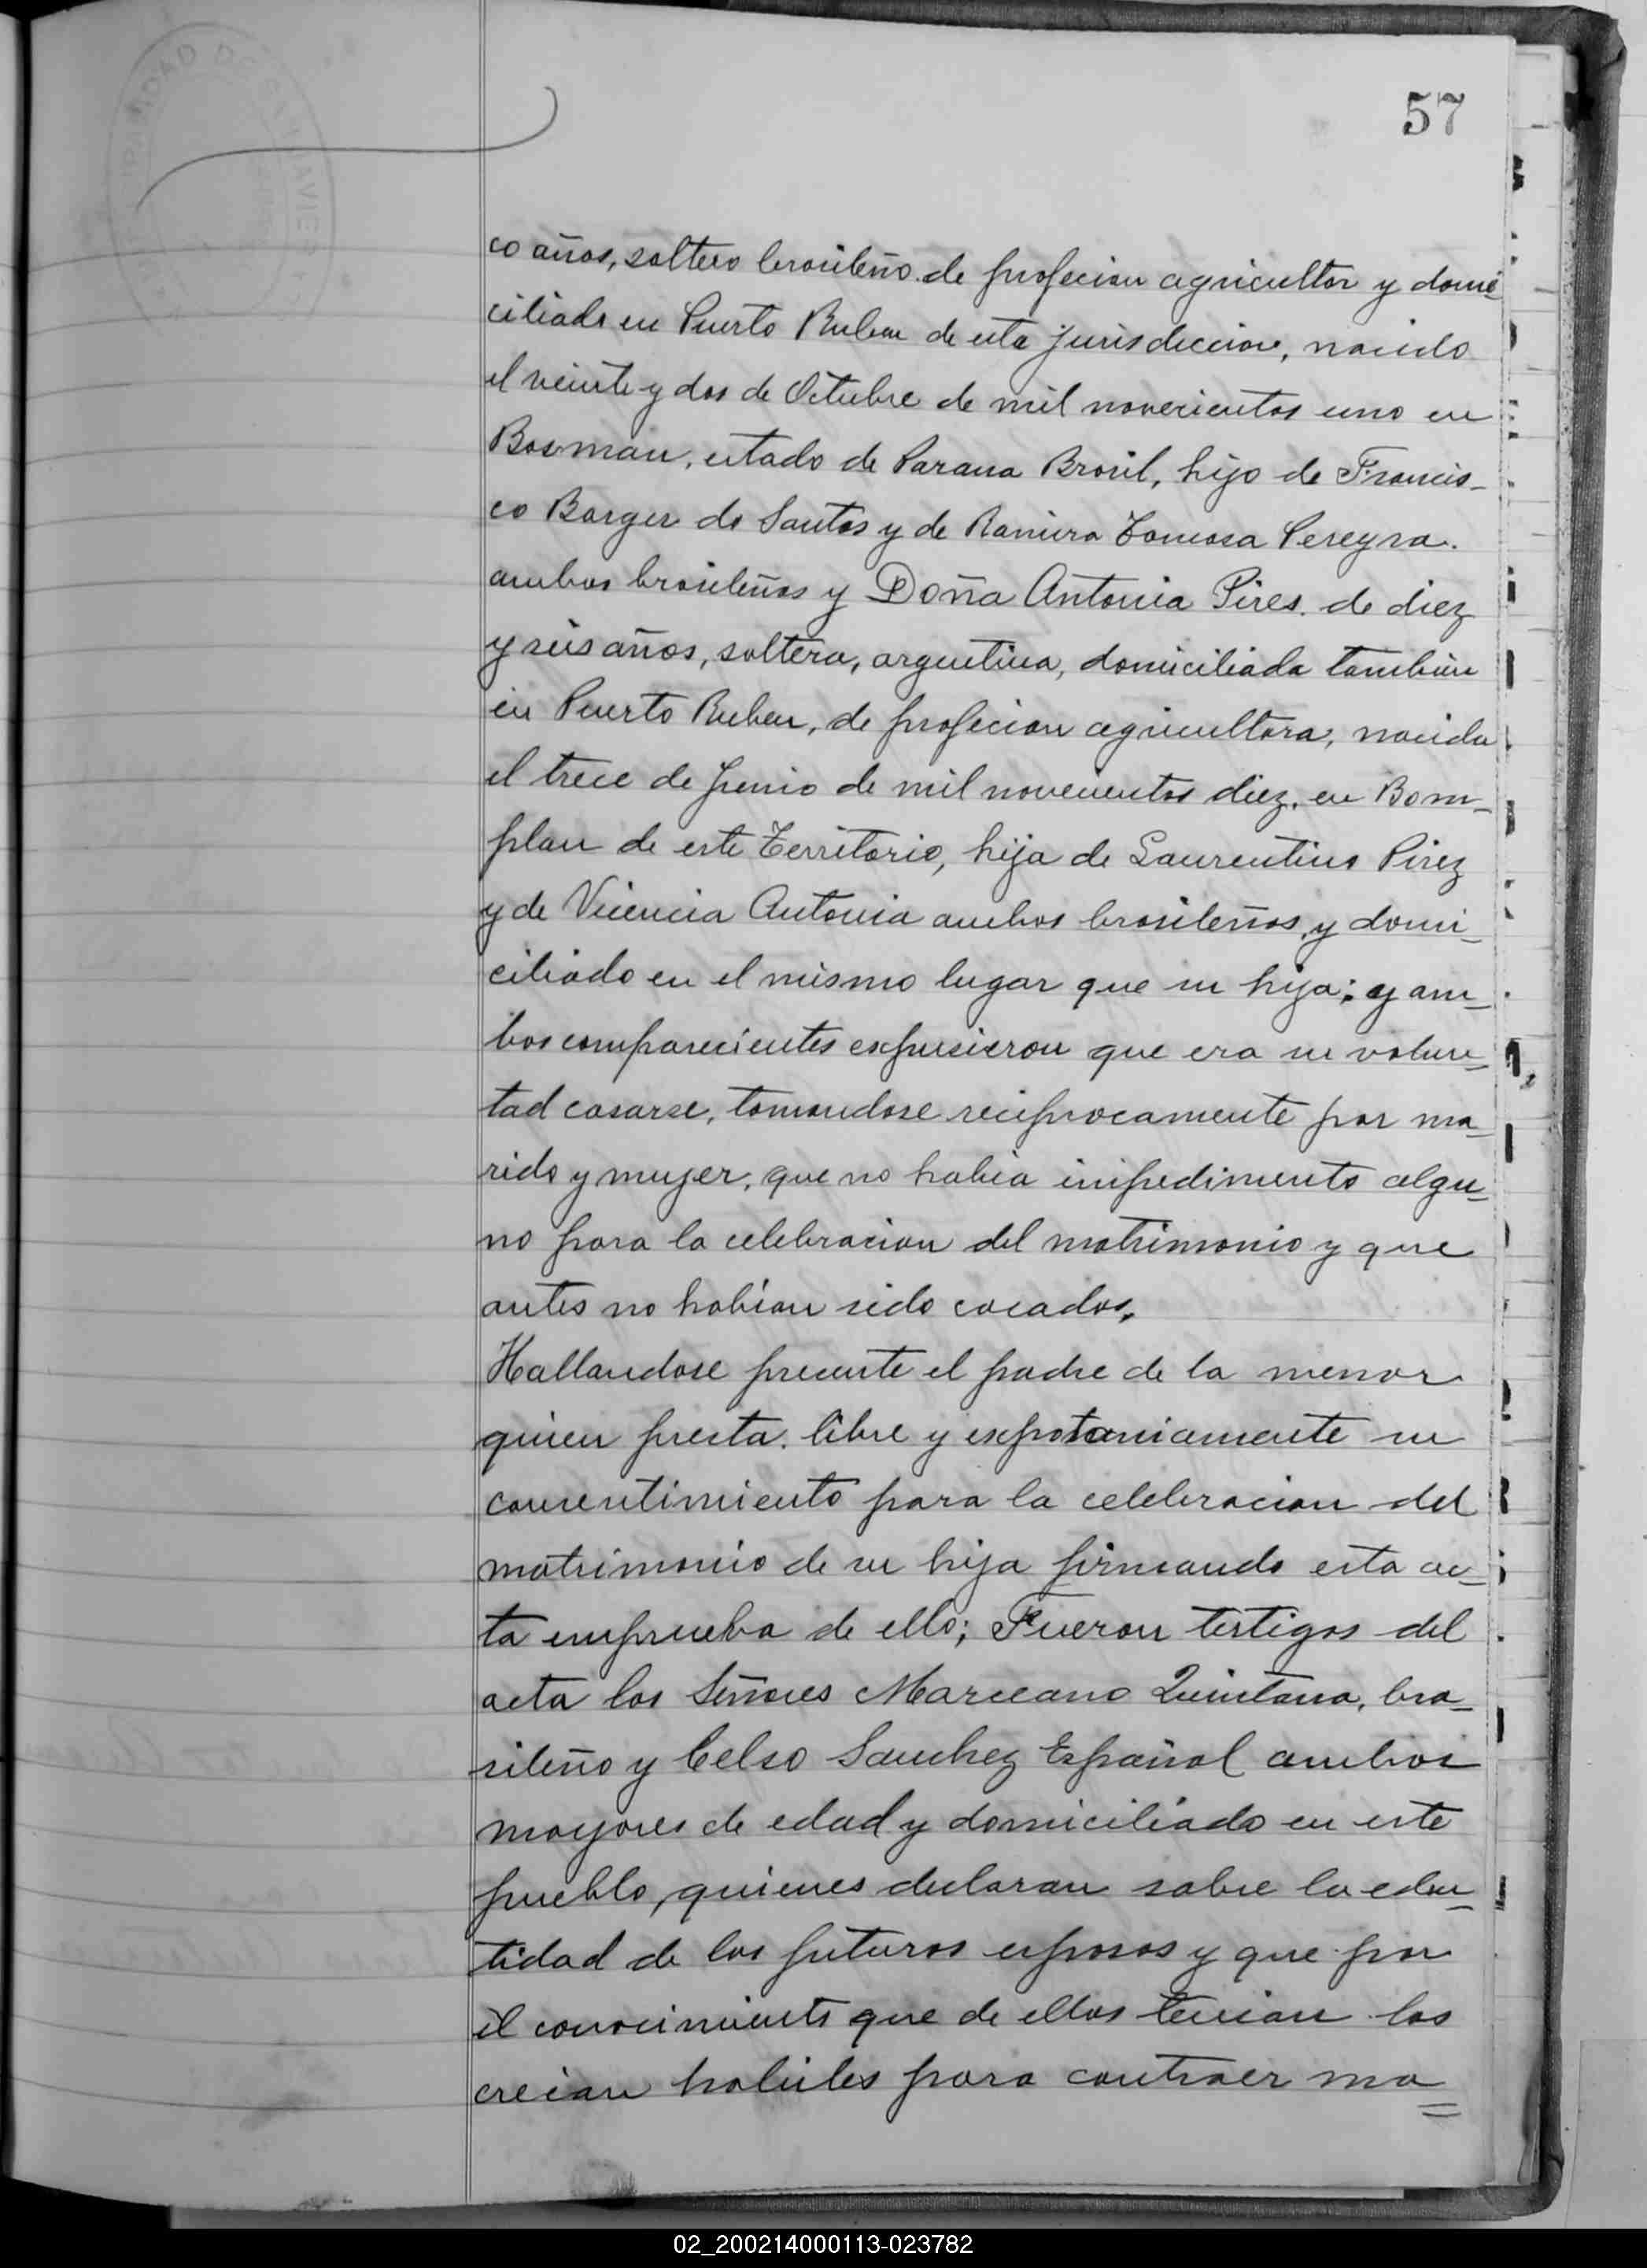 57
co años, soltero brasileño de profecion agricultor y domi
ciliado en Puerto Ruben de esta jurisdiccion, nacido
el veinte y dos de Octubre de mil novecientos uno en
estado de Parana Brasil, hijo de Francis-
co Borger do Santos y de Ramira Tomosa Pereyra.
ambos brasileños y Doña Antonia Pires. de diez
y seis años, soltera, argentina, domiciliada tambien
en Puerto Ruben, de profecion agricultora, nacida
el trece de Junio de mil novecientos diez, en Bom-
plan de este Territorio, hija de Laurentino Pirez
y de Vicencia Antonia ambos brasileños, y domi-
ciliado en el mismo lugar que su hija; y am-
bos comparecientes expusieron que era su volun-
tad casarse, tomandose reciprocamente por ma-
rido y mujer, que no habia impedimento algu-
no para la celebracion del matrimonio y que
antes no habian sido casados.
Hallandose presente el padre de la menor
quien presta. libre y expotaniamente su
consentimiento para la celebracion del
matrimonio de su hija firmando esta ac-
ta enprueba de ello; Fueron testigos del
acta los Señores Marceano Quintana, bra-
sileño y Celso Sanchez Español ambos
mayores de edad y domiciliado en este
pueblo, quienes declaran sobre la eden-
tidad de los futuros esposos y que por
el conocimiento que de ellos tenian los
creian habiles para contraer ma
02_200214000113-023782